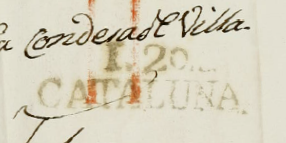 la Condesa de Villa.
I. 20.
CATALUNA.